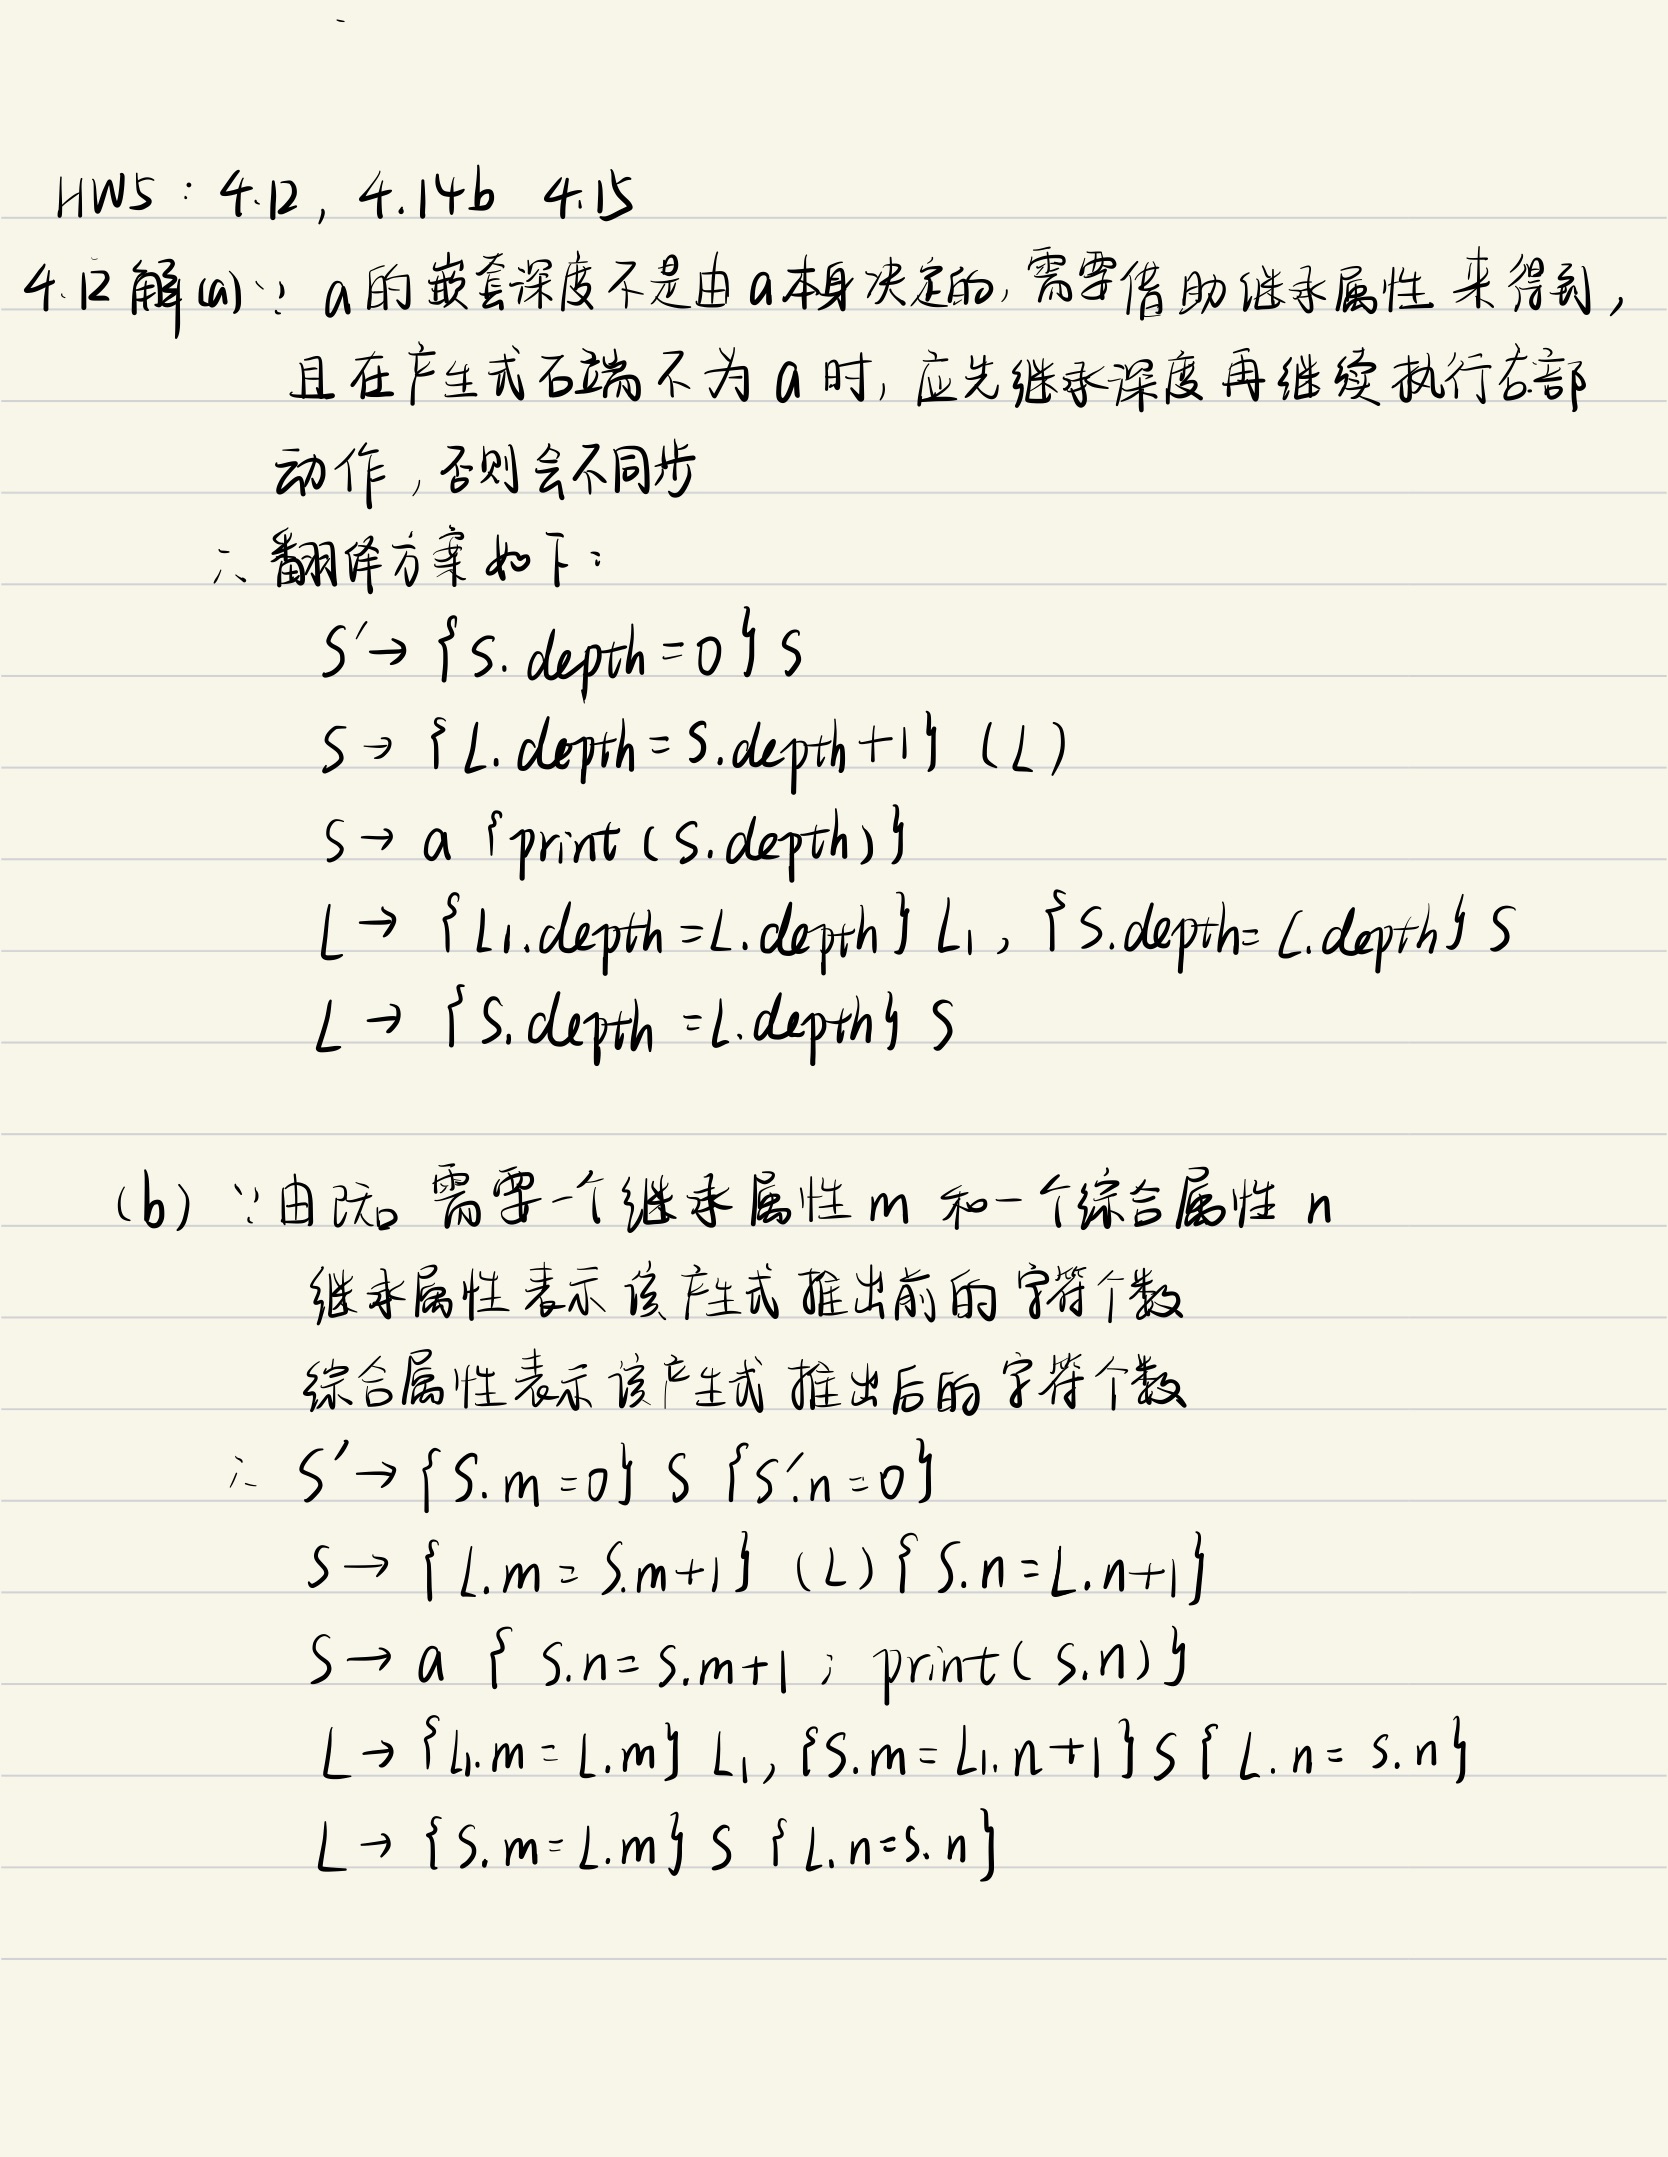 HW5：4.12，4.14b 4.15
4.12 解(a) ∵ a的嵌套深度不是由a本身决定的，需要借助继承属性来得到，
且在产生式右端不为a时，应先继承深度再继续执行右部
动作，否则会不同步
∴ 翻译方案如下：
S′→ {S.depth=0} S
S → {L.depth=S.depth+1} (L)
S → a {print(S.depth)}
L → {L₁.depth=L.depth} L₁, {S.depth=L.depth} S
L → {S.depth=L.depth} S
(b) ∵由 需要一个继承属性m和一个综合属性n
继承属性表示该产生式推出前的字符个数
综合属性表示该产生式推出后的字符个数
∴ S′→ {S.m=0} S {S′.n=0}
S → {L.m=S.m+1} (L) {S.n=L.n+1}
S → a {S.n=S.m+1; print(S.n)}
L → {L₁.m=L.m} L₁, {S.m=L₁.n+1} S {L.n=S.n}
L → {S.m=L.m} S {L.n=S.n}